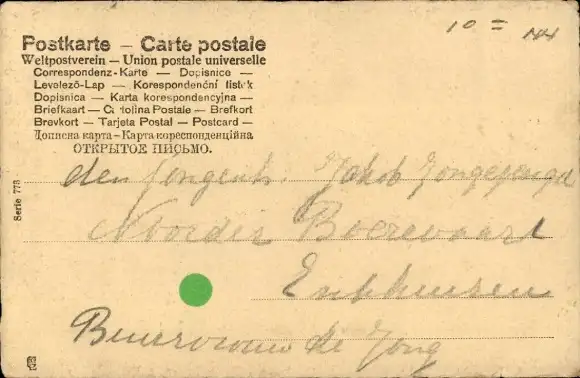 10 =
Postkarte – Carte postale
Weltpostverein – Union postale universelle
Correspondenz-Karte – Dopisnice –
Levelező-Lap – Korespondenční lístek
Dopisnica – Karta korespondencyjna –
Briefkaart – Cartolina Postale – Brefkort
Brevkort – Tarjeta Postal – Postcard –
Дописна карта – Карта кореспонденційна
ОТКРЫТОЕ ПИСЬМО.
Serie 773
den Jongenh. Jakob
Noorder Boerevaart
Enkhuizen
Buurvrouw de Jong